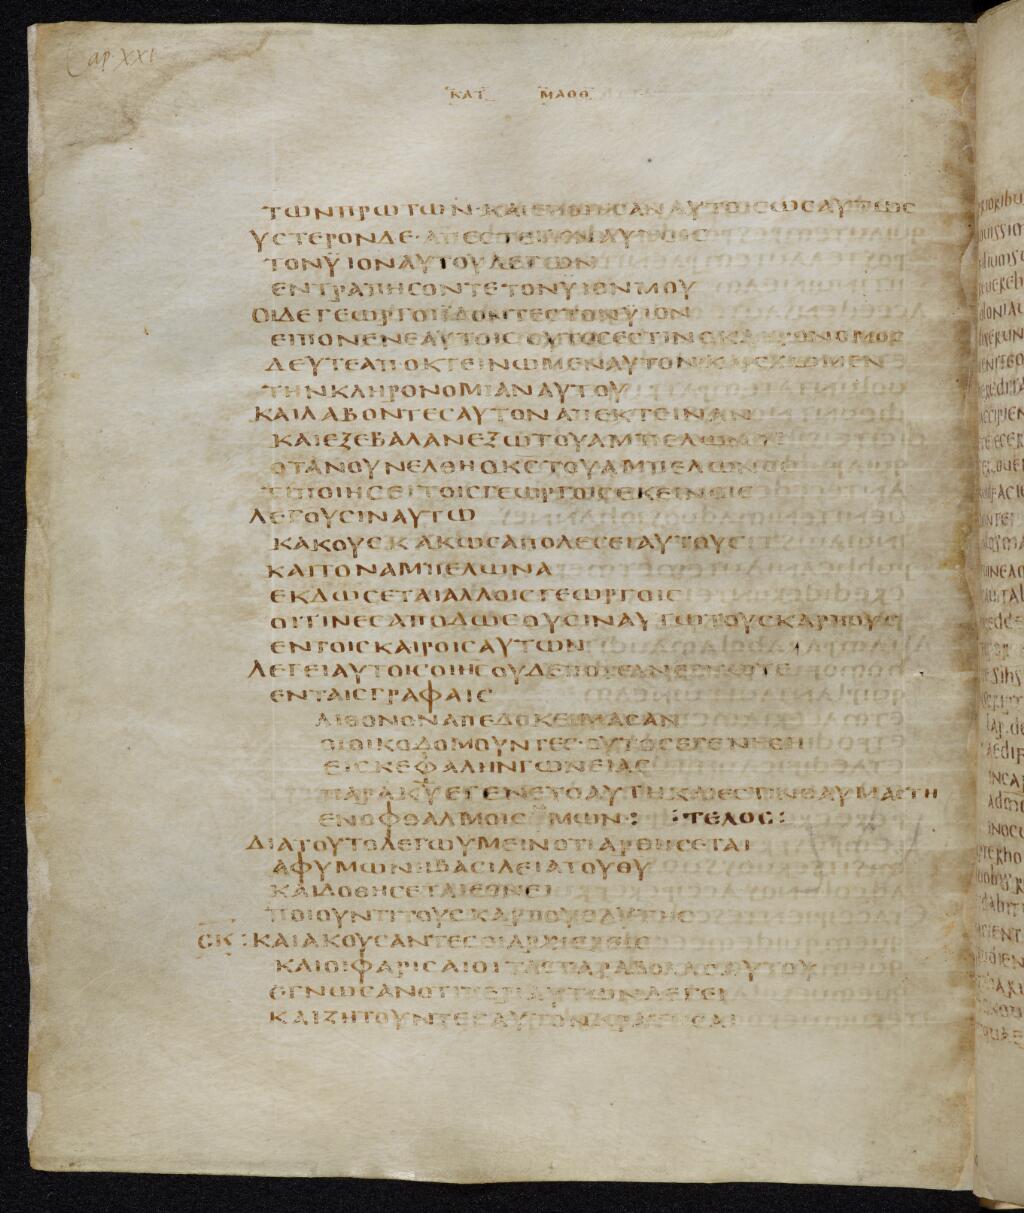 Cap. XXI
ΚΑΤ ΜΑΘΘ
ΤΩΝΠΡΩΤΩΝ·ΚΑΙΕΠΟΙΗΣΑΝΑΥΤΟΙΣΩΣΑΥΤΩΣ
ΥΣΤΕΡΟΝΔΕ·ΑΠΕΣΤΕΙΛΕΝΑΥΤΟΙΣ
ΤΟΝΫΙΟΝΑΥΤΟΥΛΕΓΩΝ
ΕΝΤΡΑΠΗΣΟΝΤΕΤΟΝΫΙΟΝΜΟΥ
ΟΙΔΕΓΕΩΡΓΟΙΪΔΟΝΤΕΣΤΟΝΫΙΟΝ
ΕΙΠΟΝΕΝΕΑΥΤΟΙΣΟΥΤΟΣΕΣΤΙΝΟΚΛΗΡΟΝΟΜΟΣ
ΔΕΥΤΕΑΠΟΚΤΕΙΝΩΜΕΝΑΥΤΟΝ·ΚΑΙΣΧΩΜΕΝ
ΤΗΝΚΛΗΡΟΝΟΜΙΑΝΑΥΤΟΥ
ΚΑΙΛΑΒΟΝΤΕΣΑΥΤΟΝΑΠΕΚΤΕΙΝΑΝ
ΚΑΙΕΞΕΒΑΛΑΝΕΞΩΤΟΥΑΜΠΕΛΩΝΟΣ
ΟΤΑΝΟΥΝΕΛΘΗΟΚΣΤΟΥΑΜΠΕΛΩΝΟΣ
ΤΙΠΟΙΗΣΕΙΤΟΙΣΓΕΩΡΓΟΙΣΕΚΕΙΝΟΙΣ
ΛΕΓΟΥΣΙΝΑΥΤΩ
ΚΑΚΟΥΣΚΑΚΩΣΑΠΟΛΕΣΕΙΑΥΤΟΥΣ
ΚΑΙΤΟΝΑΜΠΕΛΩΝΑ
ΕΚΔΩΣΕΤΑΙΑΛΛΟΙΣΓΕΩΡΓΟΙΣ
ΟΙΤΙΝΕΣΑΠΟΔΩΣΟΥΣΙΝΑΥΤΩΤΟΥΣΚΑΡΠΟΥΣ
ΕΝΤΟΙΣΚΑΙΡΟΙΣΑΥΤΩΝ
ΛΕΓΕΙΑΥΤΟΙΣΟΙΗΣΟΥΔΕΠΟΤΕΑΝΕΓΝΩΤΕ
ΕΝΤΑΙΣΓΡΑΦΑΙΣ
ΛΙΘΟΝΟΝΑΠΕΔΟΚΕΙΜΑΣΑΝ
ΟΙΟΙΚΟΔΟΜΟΥΝΤΕΣ·ΟΥΤΟΣΕΓΕΝΗΘΗ
ΕΙΣΚΕΦΑΛΗΝΓΩΝΕΙΑΣ
ΠΑΡΑΚΥΕΓΕΝΕΤΟΑΥΤΗΚΑΙΕΣΤΙΝΘΑΥΜΑΣΤΗ
ΕΝΟΦΘΑΛΜΟΙΣΫΜΩΝ: :ΤΕΛΟΣ:
ΔΙΑΤΟΥΤΟΛΕΓΩΥΜΕΙΝΟΤΙΑΡΘΗΣΕΤΑΙ
ΑΦΥΜΩΝΗΒΑΣΙΛΕΙΑΤΟΥΘΥ
ΚΑΙΔΟΘΗΣΕΤΑΙΕΘΝΕΙ
ΠΟΙΟΥΝΤΙΤΟΥΣΚΑΡΠΟΥΣΑΥΤΗΣ
ΣΚ:ΚΑΙΑΚΟΥΣΑΝΤΕΣΟΙΑΡΧΙΕΡΕΙΣ
ΚΑΙΟΙΦΑΡΙΣΑΙΟΙΤΑΣΠΑΡΑΒΟΛΑΣΑΥΤΟΥ
ΕΓΝΩΣΑΝΟΤΙΠΕΡΙΑΥΤΩΝΛΕΓΕΙ
ΚΑΙΖΗΤΟΥΝΤΕΣΑΥΤΟΝΚΡΑΤΗΣΑΙ